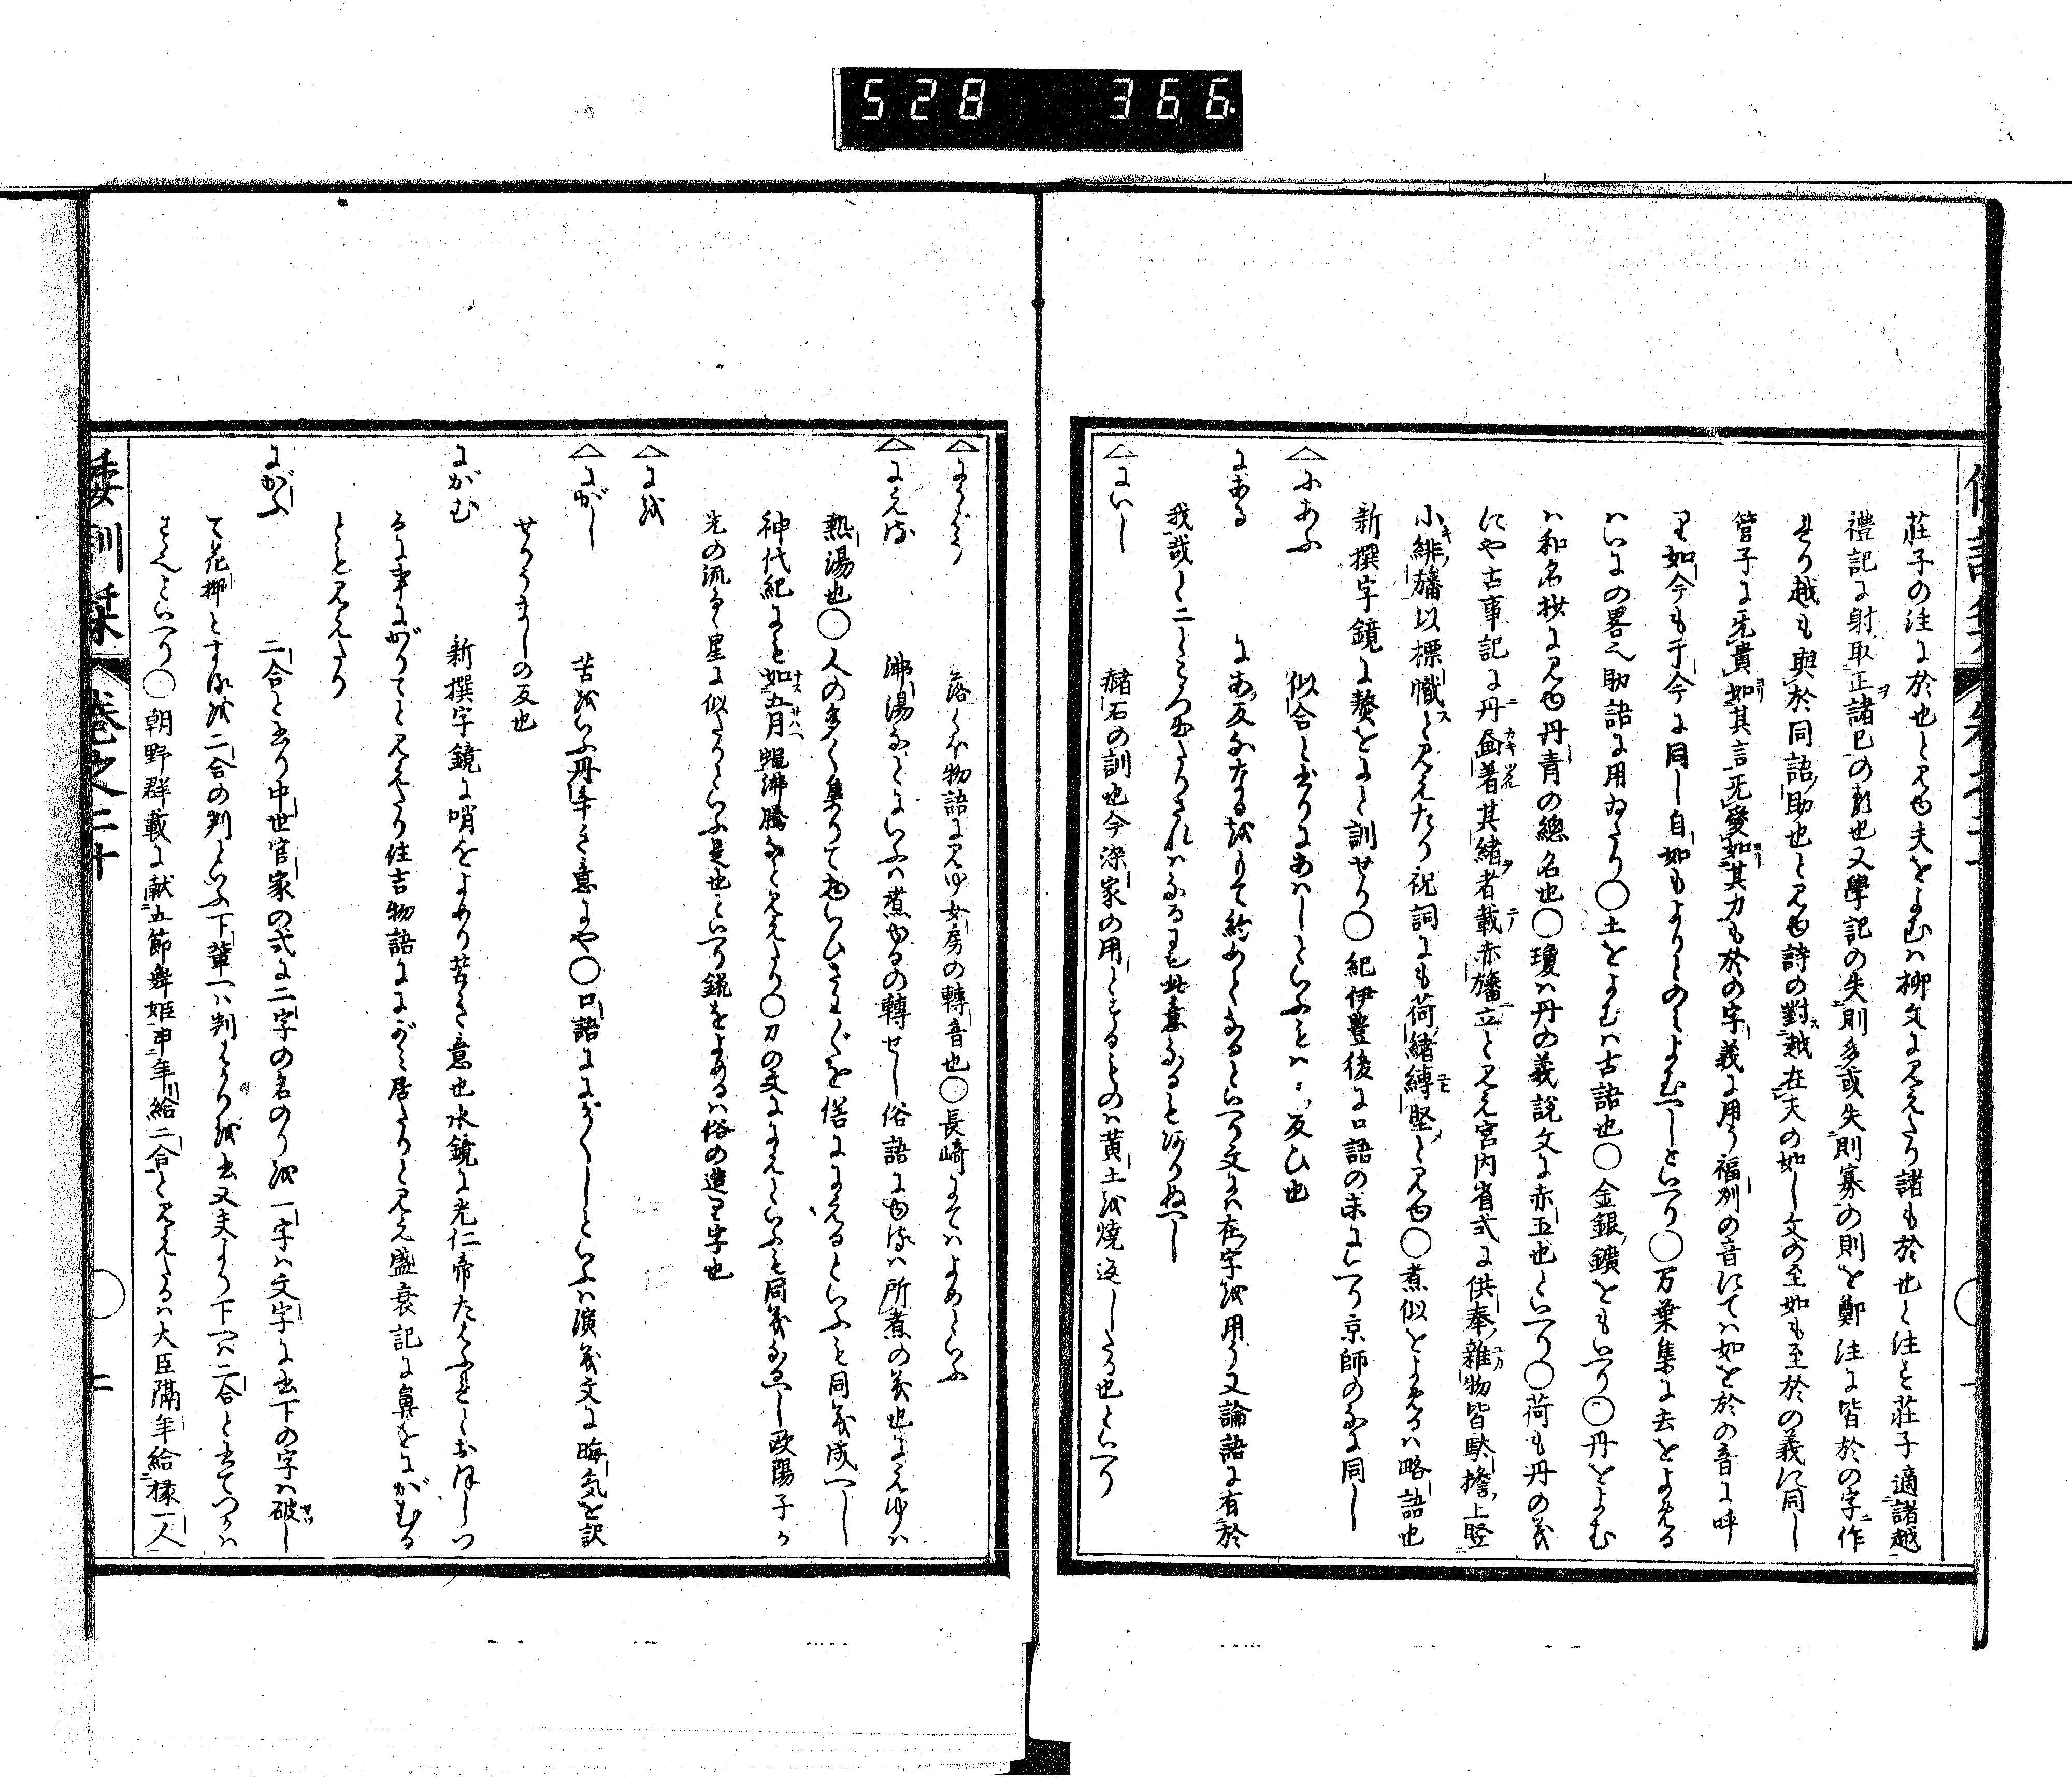 528 366
荘子の注に於也と見ゆ夫をよむハ柳文に見えたり諸も於也と注を荘子適諸越
禮記に射取正諸己の類也又學記の失則多或失則寡の則を鄭注に皆於の字作
越も與於同語助也と見ゆ詩の對越在天の如し文の至如も至於の義に同し
管子に无貴如其言无愛如其力も於の字義に用う福州の音にてハ如を於の音に呼
り如今も于今に同し自如もよりとのミよむへしといへり〇万葉集に去をよめる
ハいにの畧也助語に用ゐたり〇土をよむハ古語也〇金銀鑛をもいへり〇丹をよむ
ハ和名抄に見ゆ丹青の總名也〇瓊ハ丹の義説文に赤玉也といへり〇荷も丹の義
にや古事記に丹畫著其緒者載赤幡立と見え宮内省式に供奉雜物皆駄擔上竪
小緋旛以標幟と見えたり祝詞にも荷緒縛堅と見ゆ〇煮似をよめるハ略語也
新撰字鏡に贅をよと訓せり〇紀伊豊後に口語の末にいへり京師のなに同し
△にあふ 似合と書りにあハしといふをハ反ひ也
にある にあ反なたるをもて約めてなるといへり文には在字を用う又論語に有於
我哉と二ところ出たりされハなるも此意なると汲りぬへし
△にいし 赭石の訓也今染家の用とするものハ黄土を焼返したる也といへり
△にうばう 落くほ物語に見ゆ女房の轉音也〇長崎にてハよめといふ
△にえゆ 沸湯をにいふハ煮ゆるの轉せし俗語にゆハ所煮の義也にえゆハ
熱湯也〇人の多く集りて勢ひさわぐを俗ににえるといふも同義成へし
神代紀にも如五月蠅沸騰なと見えたり〇刀の文ににえといふも同義なるへし歐陽子か
光の流るゝ星に似たりといふ是也といへり錵をよめるハ俗の造り字也
△にを
△にがし 苦をいふ丹辛き意にや〇口語ににがくしといふハ演義文に晦気と訳
せりうましの反也
にがむ 新撰字鏡に哨をよめり苦き意也水鏡に光仁帝たはふれとおほしつ
る事にがりてと見えたり住吉物語ににがミ居たりと見え盛衰記に鼻をにがむる
とも見えたり
にがふ 二合と書り中世官家の式に二字の名のりを一字ハ文字に書下の字ハ破し
て花押とするを二合の判といふ下輩へハ判はかりを書又夫より下へハ二合と書てつかハ
さんといへり〇朝野群載に献五節舞姫申年給二合と見えたるハ大臣隔年給掾一人
倭訓栞 巻之二十 二